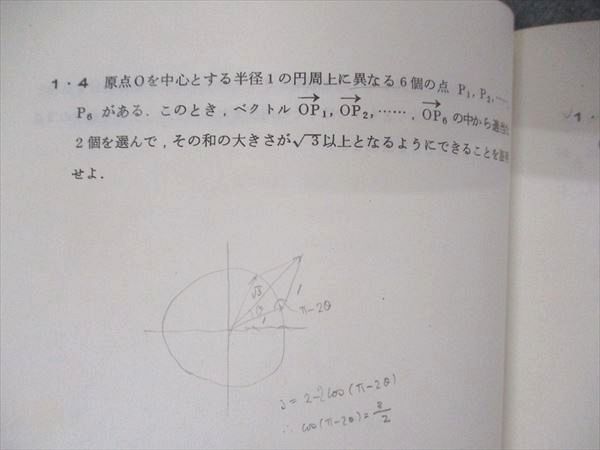 1・4 原点Oを中心とする半径1の円周上に異なる6個の点 P₁, P₂, ……,
P₆ がある. このとき, ベクトル OP₁, OP₂, ……, OP₆ の中から適当に
2個を選んで, その和の大きさが√3以上となるようにできることを証明
せよ.
√3
1
1
π-2θ
3=2-2cos(π-2θ)
∴ cos(π-2θ)=
1・